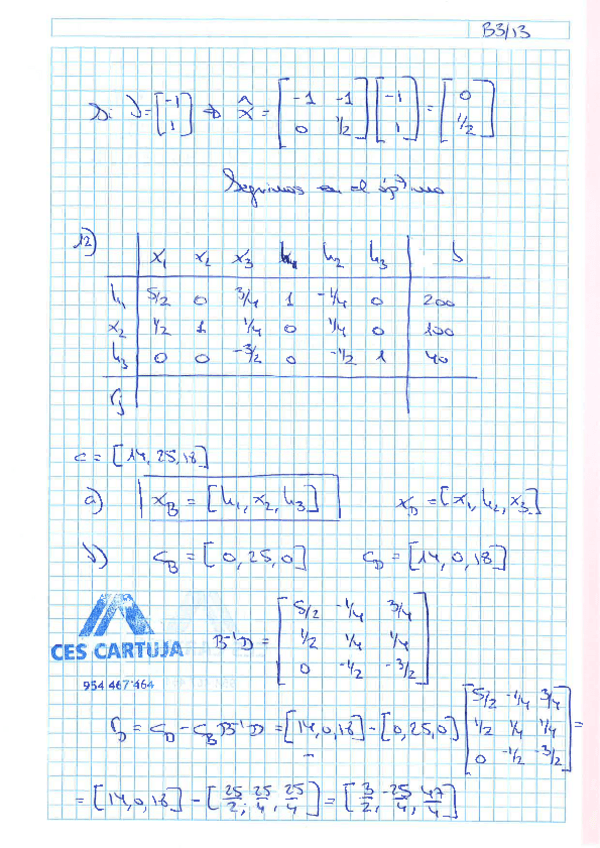 B3/13
Si b = [-1 1] ⇒ x̂ = [-1 -1 0 1/2] [-1 1] = [0 1/2]
Seguimos en el óptimo
12)
x₁ x₂ x₃ h₁ h₂ h₃ b
h₁ 5/2 0 3/4 1 -1/4 0 200
x₂ 1/2 1 1/4 0 1/4 0 100
h₃ 0 0 -3/2 0 -1/2 1 40
rj
c = [14, 25, 18]
a) x_B = [h₁, x₂, h₃] x_D = [x₁, h₂, x₃]
b) c_B = [0, 25, 0] c_D = [14, 0, 18]
CES CARTUJA
954 467 464
B⁻¹D = [5/2 -1/4 3/4
1/2 1/4 1/4
0 -1/2 -3/2]
r_D = c_D - c_B B⁻¹D = [14, 0, 18] - [0, 25, 0] [5/2 -1/4 3/4
1/2 1/4 1/4
0 -1/2 -3/2] =
= [14, 0, 18] - [25/2, 25/4, 25/4] = [3/2, -25/4, 47/4]